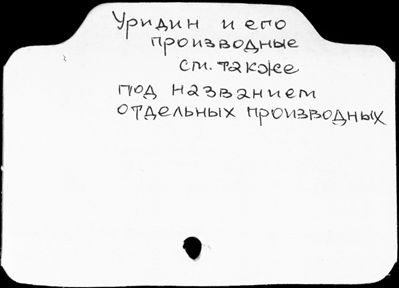 Уридин и его
производные
см. также
под названием
отдельных производных